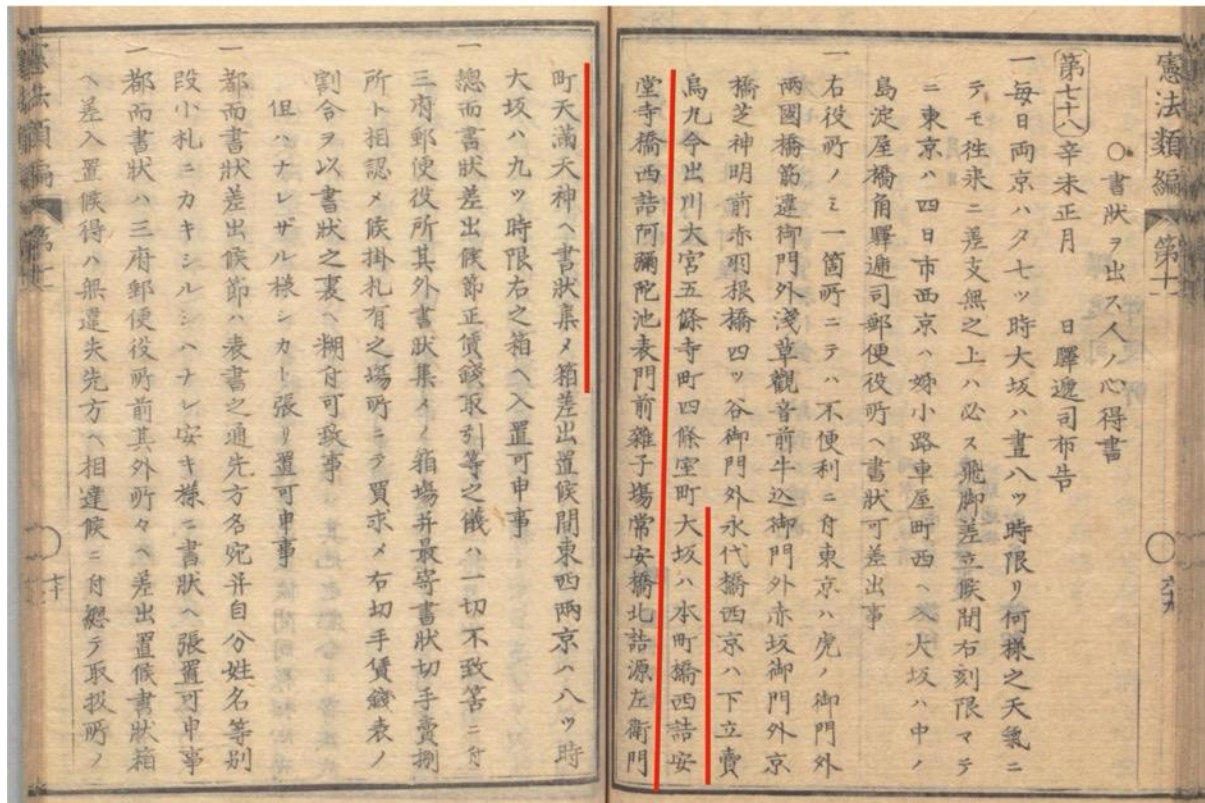 憲法類編 第十
○書狀ヲ出ス人ノ心得書
第七十八 辛未正月 日驛遞司布告
一每日両京ハタ七ツ時大坂ハ晝八ツ時限リ何樣之天氣ニ
テモ徃來ニ差支無之上ハ必ス飛脚差立候間右刻限マテ
ニ東京ハ四日市西京ハ姊小路車屋町西ヘ入大坂ハ中ノ
島淀屋橋角驛遞司郵便役所ヘ書狀可差出事
一右役所ノミ一箇所ニテハ不便利ニ付東京ハ虎ノ御門外
兩國橋筋違御門外淺草觀音前牛込御門外赤坂御門外京
橋芝神明前赤羽根橋四ツ谷御門外永代橋西京ハ下立賣
烏丸今出川大宮五條寺町四條室町大坂ハ本町橋西詰安
堂寺橋西詰阿彌陀池表門前雜子場常安橋北詰源左衛門
町天滿天神ヘ書狀集メ箱差出置候間東西兩京ハ八ツ時
大坂ハ九ツ時限右之箱ヘ入置可申事
一總而書狀差出候節正賃錢取引等之儀ハ一切不致筈ニ付
三府郵便役所其外書狀集メノ箱場并最寄書狀切手賣捌
所ト相認メ候掛札有之塲所ニテ買求メ右切手賃錢表ノ
割合ヲ以書狀之裏ヘ糊付可致事
但ハナレザル樣シカト張リ置可申事
一都而書狀差出候節ハ表書之通先方名宛并自分姓名等別
段小札ニカキシルシハナレ安キ樣ニ書狀ヘ張置可申事
一都而書狀ハ三府郵便役所前其外所々ヘ差出置候書狀箱
ヘ差入置候得ハ無違失先方ヘ相達候ニ付總テ取扱所ノ